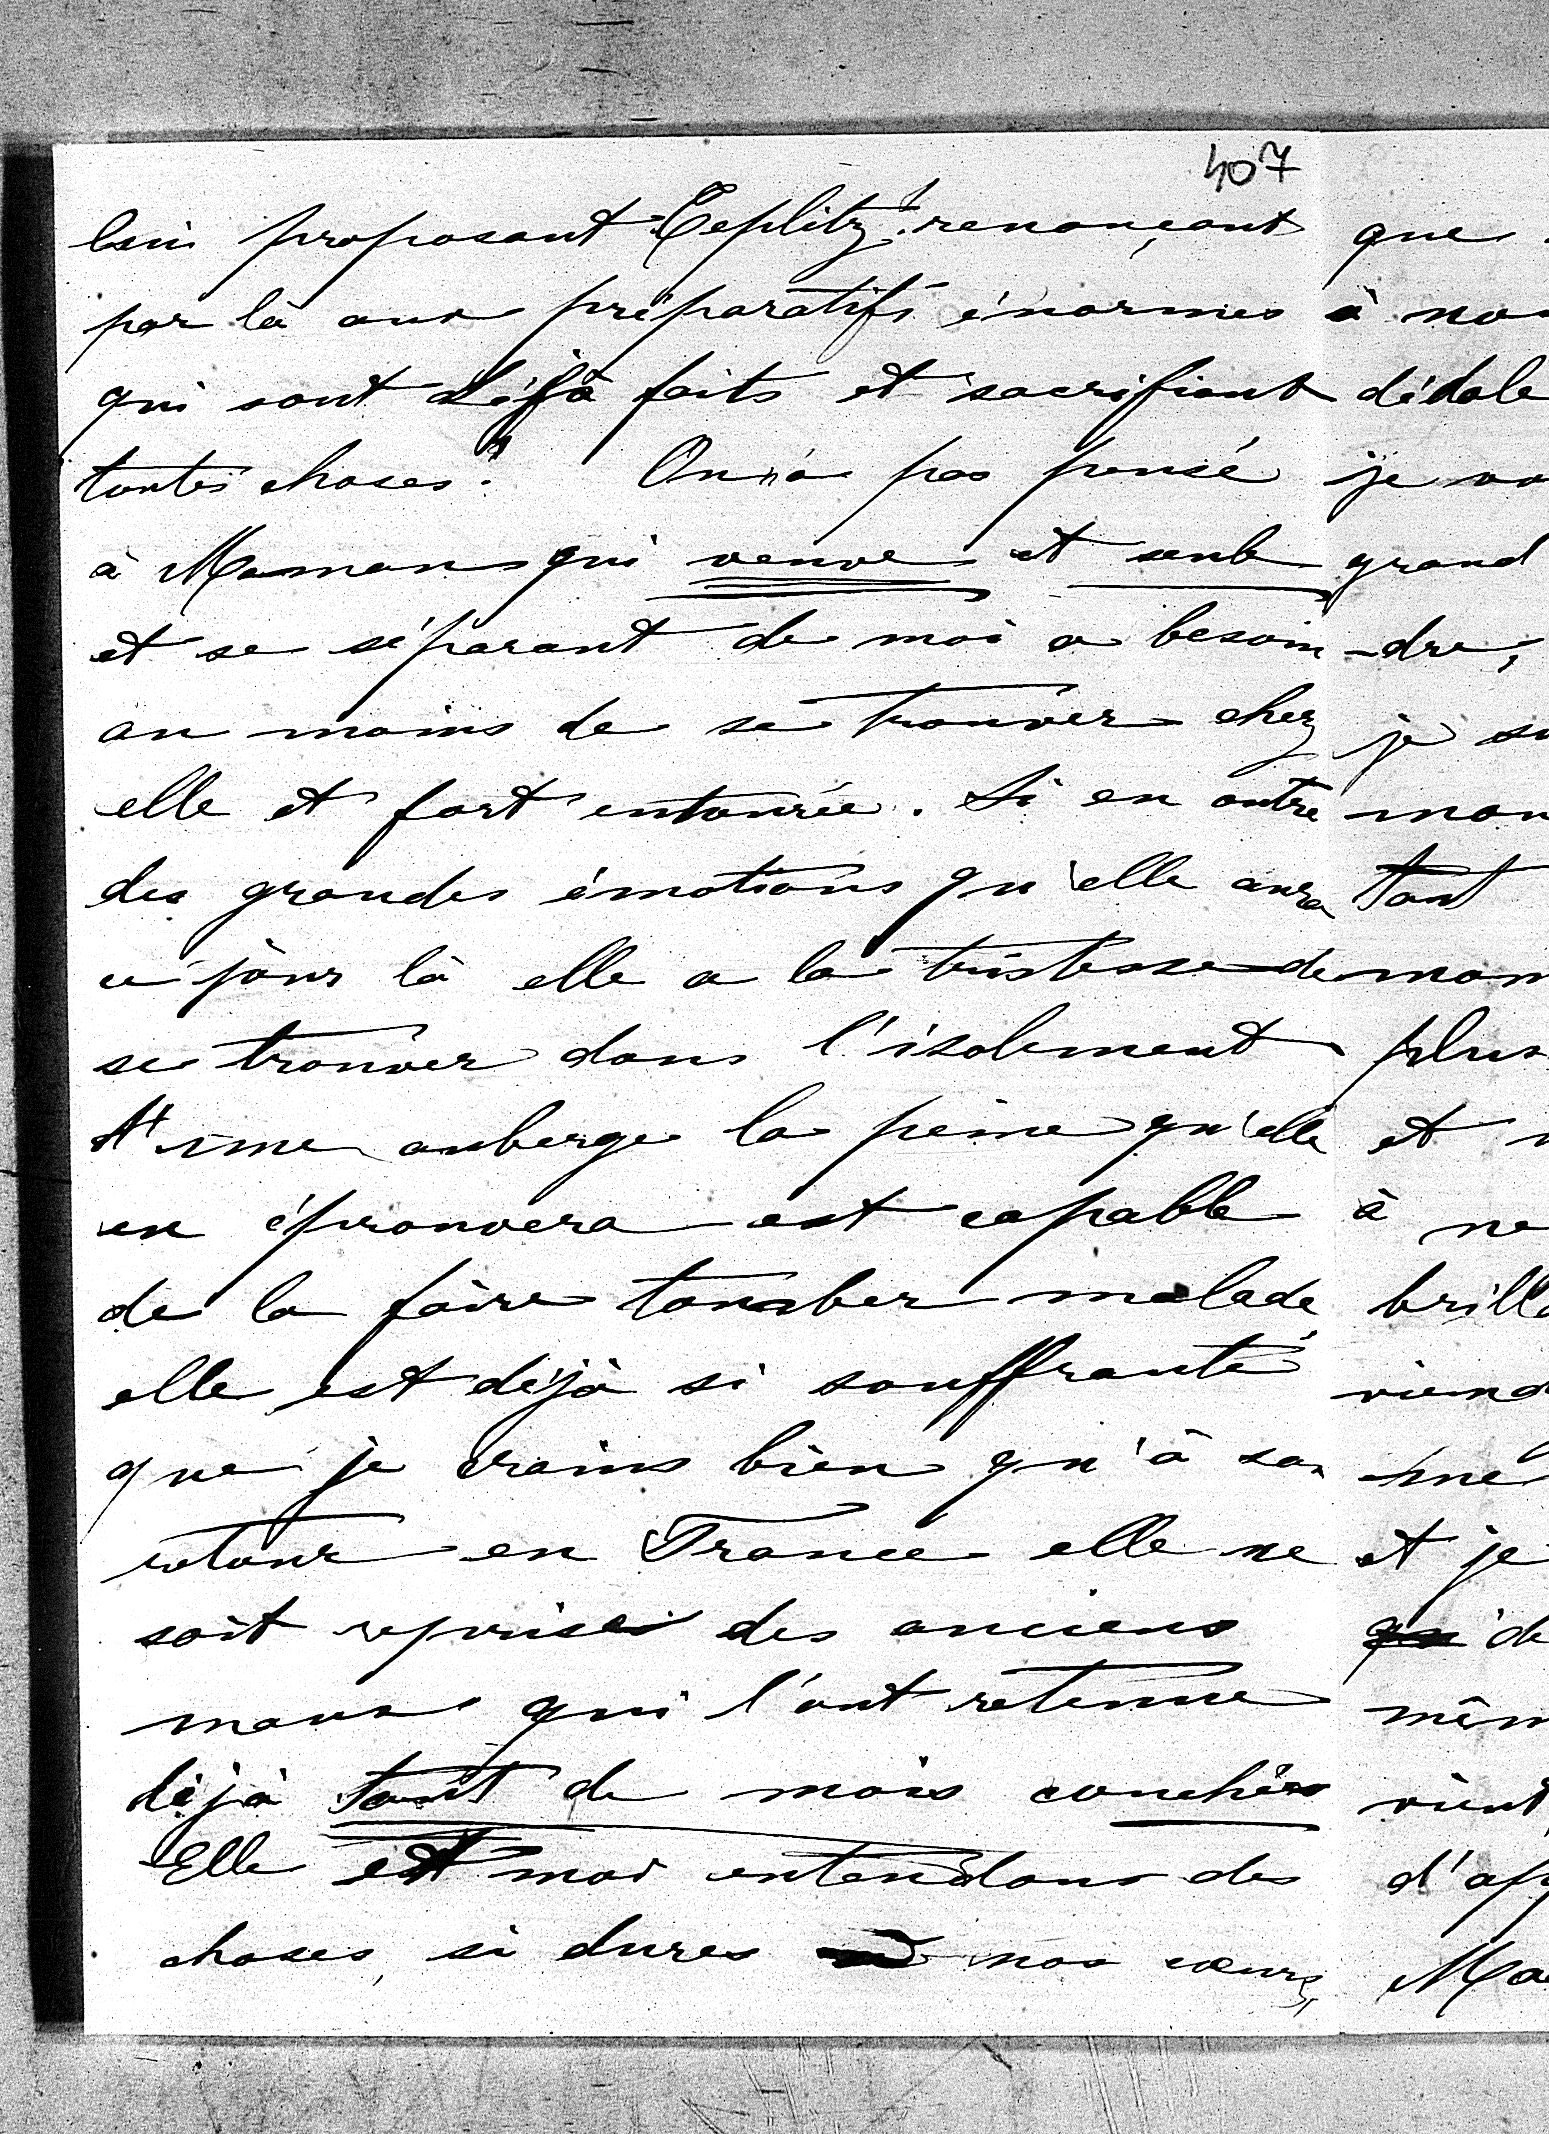 407
lui proposant Teplitz! renonçant
par là aux préparatifs énormes
qui sont déjà faits et sacrifiant
toutes choses." On n'a pas pensé
à Maman qui veuve et seule
et se séparant de moi a besoin
au moins de se trouver chez
elle et fort entourée. Si en outre
des grandes émotions qu'elle aura
ce jour là elle a la tristesse de
se trouver dans l'isolement
d'une auberge la peine qu'elle
en éprouvera est capable
de la faire tomber malade
elle est déjà si souffrante
que je crains bien qu'à son
retour en France elle ne
soit reprise des anciens
maux qui l'ont retenue
déjà tant de mois couchée
Elle et moi entendons des
choses, si dures nos cœurs,
que
à no
dédale
je vo
grand
-dre,
je su
mon
tant
mom
plus
et
à ne
brilla
viend
mé
et je
de
mêm
vient
d'ap
Ma